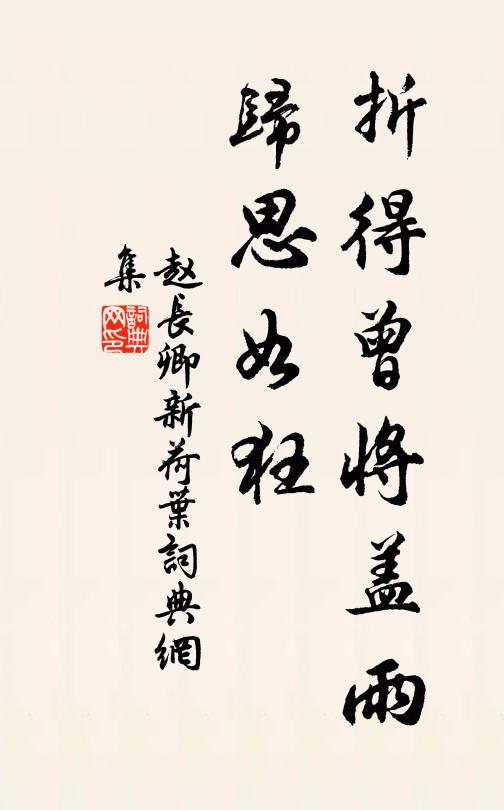 折得曾将盖雨
歸思如狂
赵長卿新荷葉詞典網
集
詞典
网印